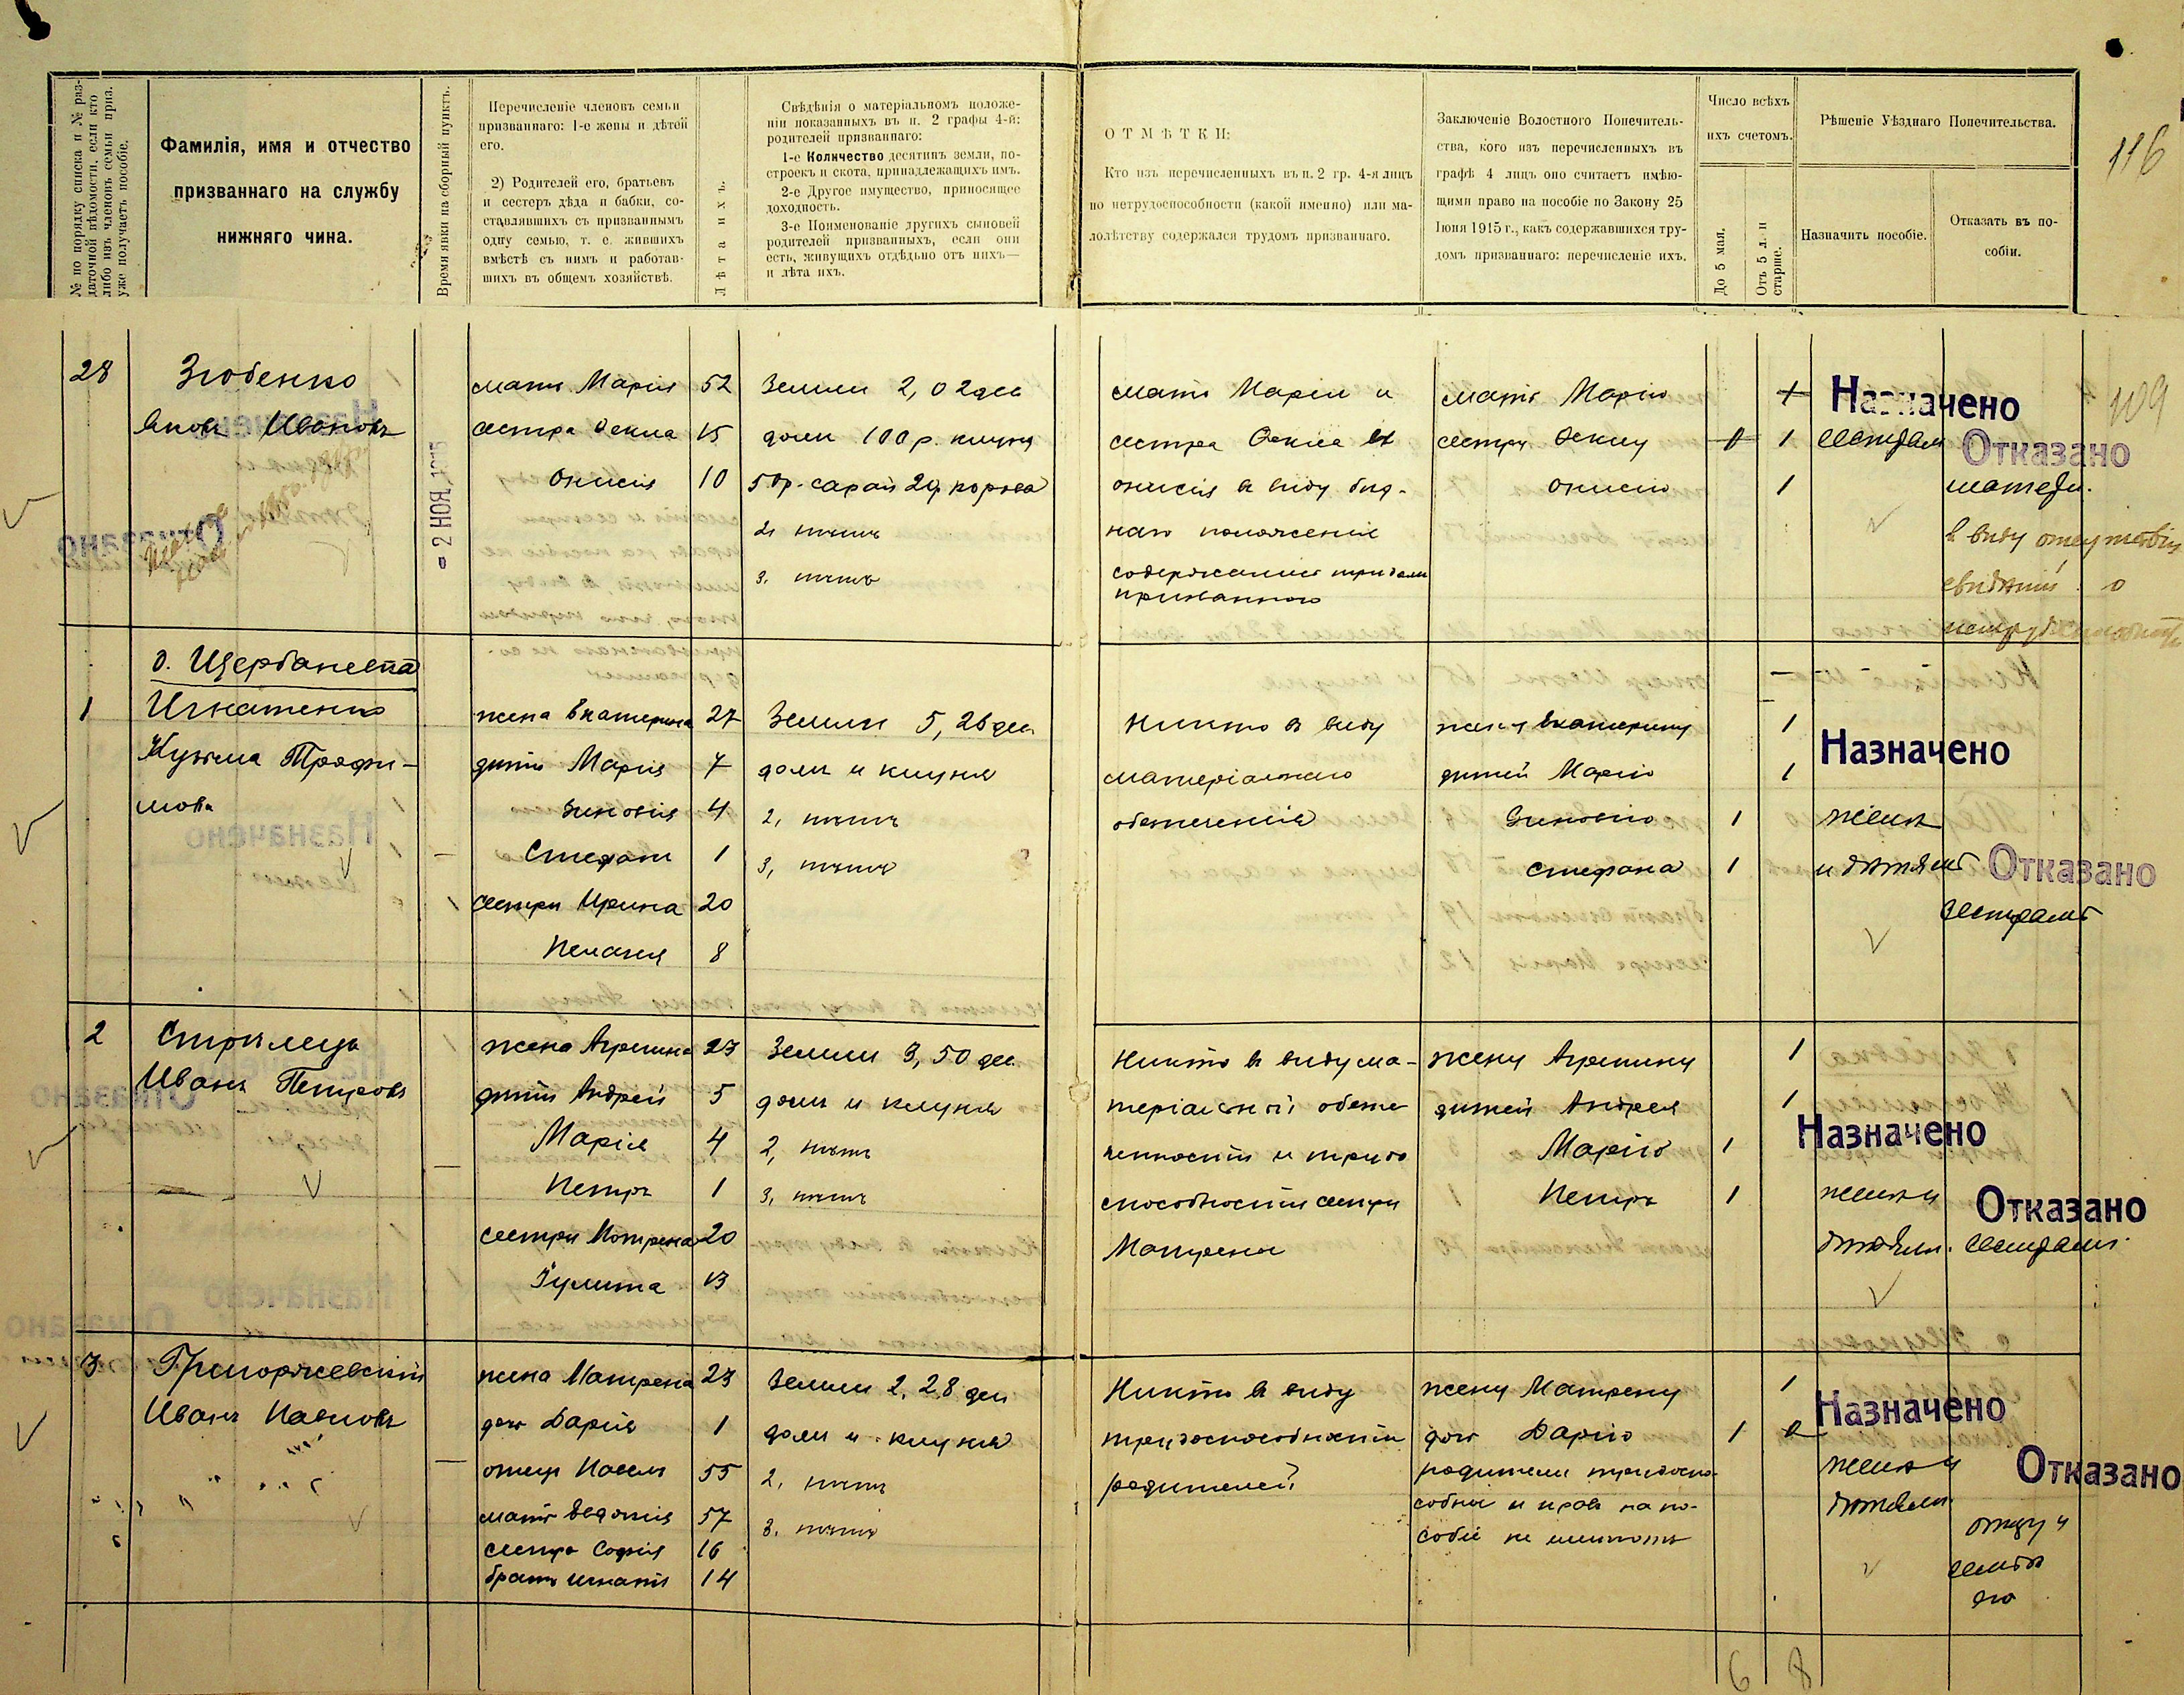 № по порядку списка и № раз-
даточной вѣдомости, если кто
либо изъ членовъ семьи приз.
уже получаетъ пособіе.
Фамилія, имя и отчество
призваннаго на службу
нижняго чина.
Время явки на сборный пунктъ.
Перечисленіе членовъ семьи
призваннаго: 1-е жены и дѣтей
его.
2) Родителей его, братьевъ
и сестеръ дѣда и бабки, со-
ставлявшихъ съ призваннымъ
одну семью, т. е. жившихъ
вмѣстѣ съ нимъ и работав-
шихъ въ общемъ хозяйствѣ.
Лѣта ихъ.
Свѣдѣнія о матеріальномъ положе-
ніи показанныхъ въ п. 2 графы 4-й:
родителей призваннаго:
1-е Количество десятинъ земли, по-
строекъ и скота, принадлежащихъ имъ.
2-е Другое имущество, приносящее
доходность.
3-е Поименованіе другихъ сыновей
родителей призванныхъ, если они
есть, живущихъ отдѣльно отъ нихъ—
и лѣта ихъ.
ОТМѢТКИ:
Кто изъ перечисленныхъ въ п. 2 гр. 4-я лицъ
по нетрудоспособности (какой именно) или ма-
лолѣтству содержался трудомъ призваннаго.
Заключеніе Волостного Попечитель-
ства, кого изъ перечисленныхъ въ
графѣ 4 лицъ оно считаетъ имѣю-
щими право на пособіе по Закону 25
Іюня 1915 г., какъ содержавшихся тру-
домъ призваннаго: перечисленіе ихъ.
Число всѣхъ
ихъ счетомъ.
До 5 мая.
Отъ 5 л. и
старше.
Рѣшеніе Уѣзднаго Попечительства.
Назначить пособіе.
Отказать въ по-
собіи.
116
109
28
Згобенко
Яковъ Ивановъ
2 НОЯ. 1915
мать Марія 52
сестра Оекла 15
Онисія 10
Земли 2,02 дес
домъ 100 р. клуня
50 р. сарай 20 р корова
2, нѣтъ
3. нѣтъ
мать Марія и
сестра Оекла и
онисія в виду бѣд-
наго положенія
содержались трудомъ
призваннаго
мать Марію
сестру Оеклу
онисію
1
1
1
Назначено
сестрам
Отказано
матери.
в виду отсутствія
свѣдѣній о
нетрудоспособности
Отказано
д. Щербановка
1
Игнатенко
Кузьма Трофи-
мовъ
жена Екатерина 27
дѣти Марія 7
Зиновія 4
Стефанъ 1
сестры Ирина 20
Пелагея 8
Земли 5,26 дес
домъ и клуня
2, нѣтъ
3, нѣтъ
Никто в виду
матеріальнаго
обезпеченія
жену Екатерину
дѣтей Марію
Зиновію
Стефана
1
1
1
1
Назначено
женѣ
и дѣтямъ
Отказано
сестрамъ
2
Стрилецъ
Иванъ Петровъ
жена Агрипина 23
дѣти Андрей 5
Марія 4
Петръ 1
сестры Мотрена 20
Іулита 13
Земли 3,50 дес.
домъ и клуня
2, нѣтъ
3, нѣтъ
Никто в виду ма-
теріальной обезпе
ченности и трудо
способности сестры
Матрены
жену Агрипину
дѣтей Андрея
Марію
Петръ
1
1
1
1
Назначено
женѣ и
дѣтямъ.
Отказано
сестрамъ.
3
Григоржевскій
Иванъ Павловъ
жена Матрена 23
дочь Дарія 1
отецъ Павелъ 55
мать Евдокія 57
сестра Софія 16
братъ Игнатій 14
Земли 2,28 дес
домъ и клуня
2, нѣтъ
3. нѣтъ
Никто в виду
трудоспособности
родителей
жену Матрену
дочь Дарію
родители трудоспо-
собны и права на по-
собіе не имѣютъ
1
1
Назначено
женѣ и
дѣтямъ
Отказано
отцу и
семьѣ
его
6 8